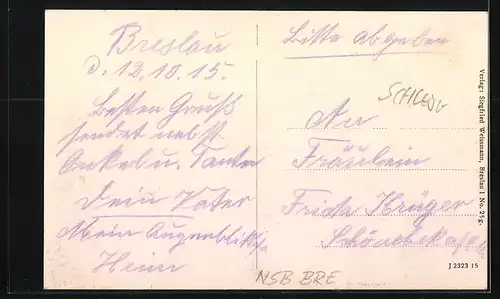 Breslau
d. 12.10.15.
Besten Gruß
sendet nebst
Onkel u. Tante
Dein Vater
Mein Augenblikl.
Heim
Bitte abgeben
An
Fräulein
Frida Krüger
NSB BRE
Verlag: Siegfried Weissmann, Breslau I No. 25g.
J 2323 15